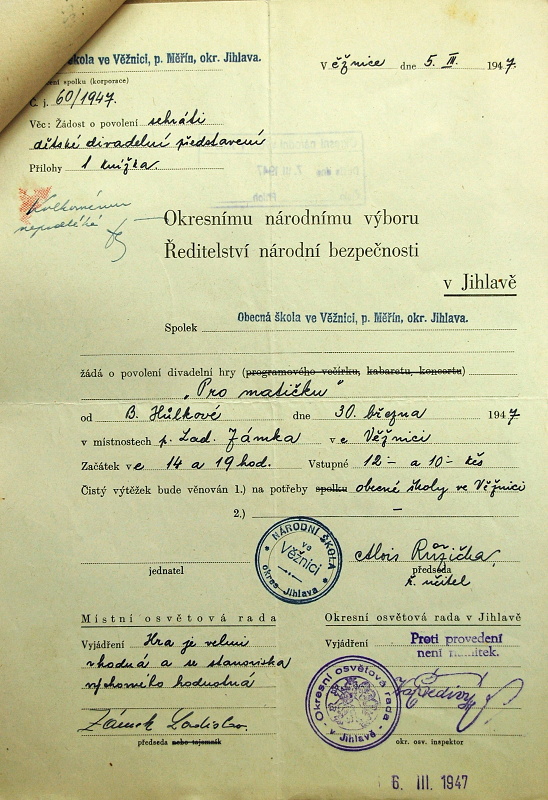 škola ve Věžnici, p. Měřín, okr. Jihlava.
V ěžnice dne 5. III. 1947.
spolku (korporace)
Č. j. 60/1947.
Věc: Žádost o povolení sehráti
dětské divadelní představení
Přílohy 1 knížka.
7. III 1947
Kolkovnému
nepodléhá
Okresnímu národnímu výboru
Ředitelství národní bezpečnosti
v Jihlavě
Spolek Obecná škola ve Věžnici, p. Měřín, okr. Jihlava.
žádá o povolení divadelní hry (programového večírku, kabaretu, koncertu)
„Pro matičku"
od B. Hůlkové dne 30. března 1947
v místnostech p. Lad. Zámka v e Věžnici
Začátek v e 14 a 19 hod. Vstupné 12·- a 10·- Kčs
Čistý výtěžek bude věnován 1.) na potřeby spolku obecné školy ve Věžnici
2.) —
NÁRODNÍ ŠKOLA
ve
Věžnici
okres Jihlava
Alois Růžička,
jednatel předseda
ř. učitel
Místní osvětová rada Okresní osvětová rada v Jihlavě
Vyjádření Hra je velmi
vhodná a se stanoviska
výchovného hodnotná
Vyjádření Proti provedení
není námitek.
Okresní osvětová rada
v Jihlavě
Zámek Ladislav.
předseda nebo tajemník
okr. osv. inspektor
6. III. 1947